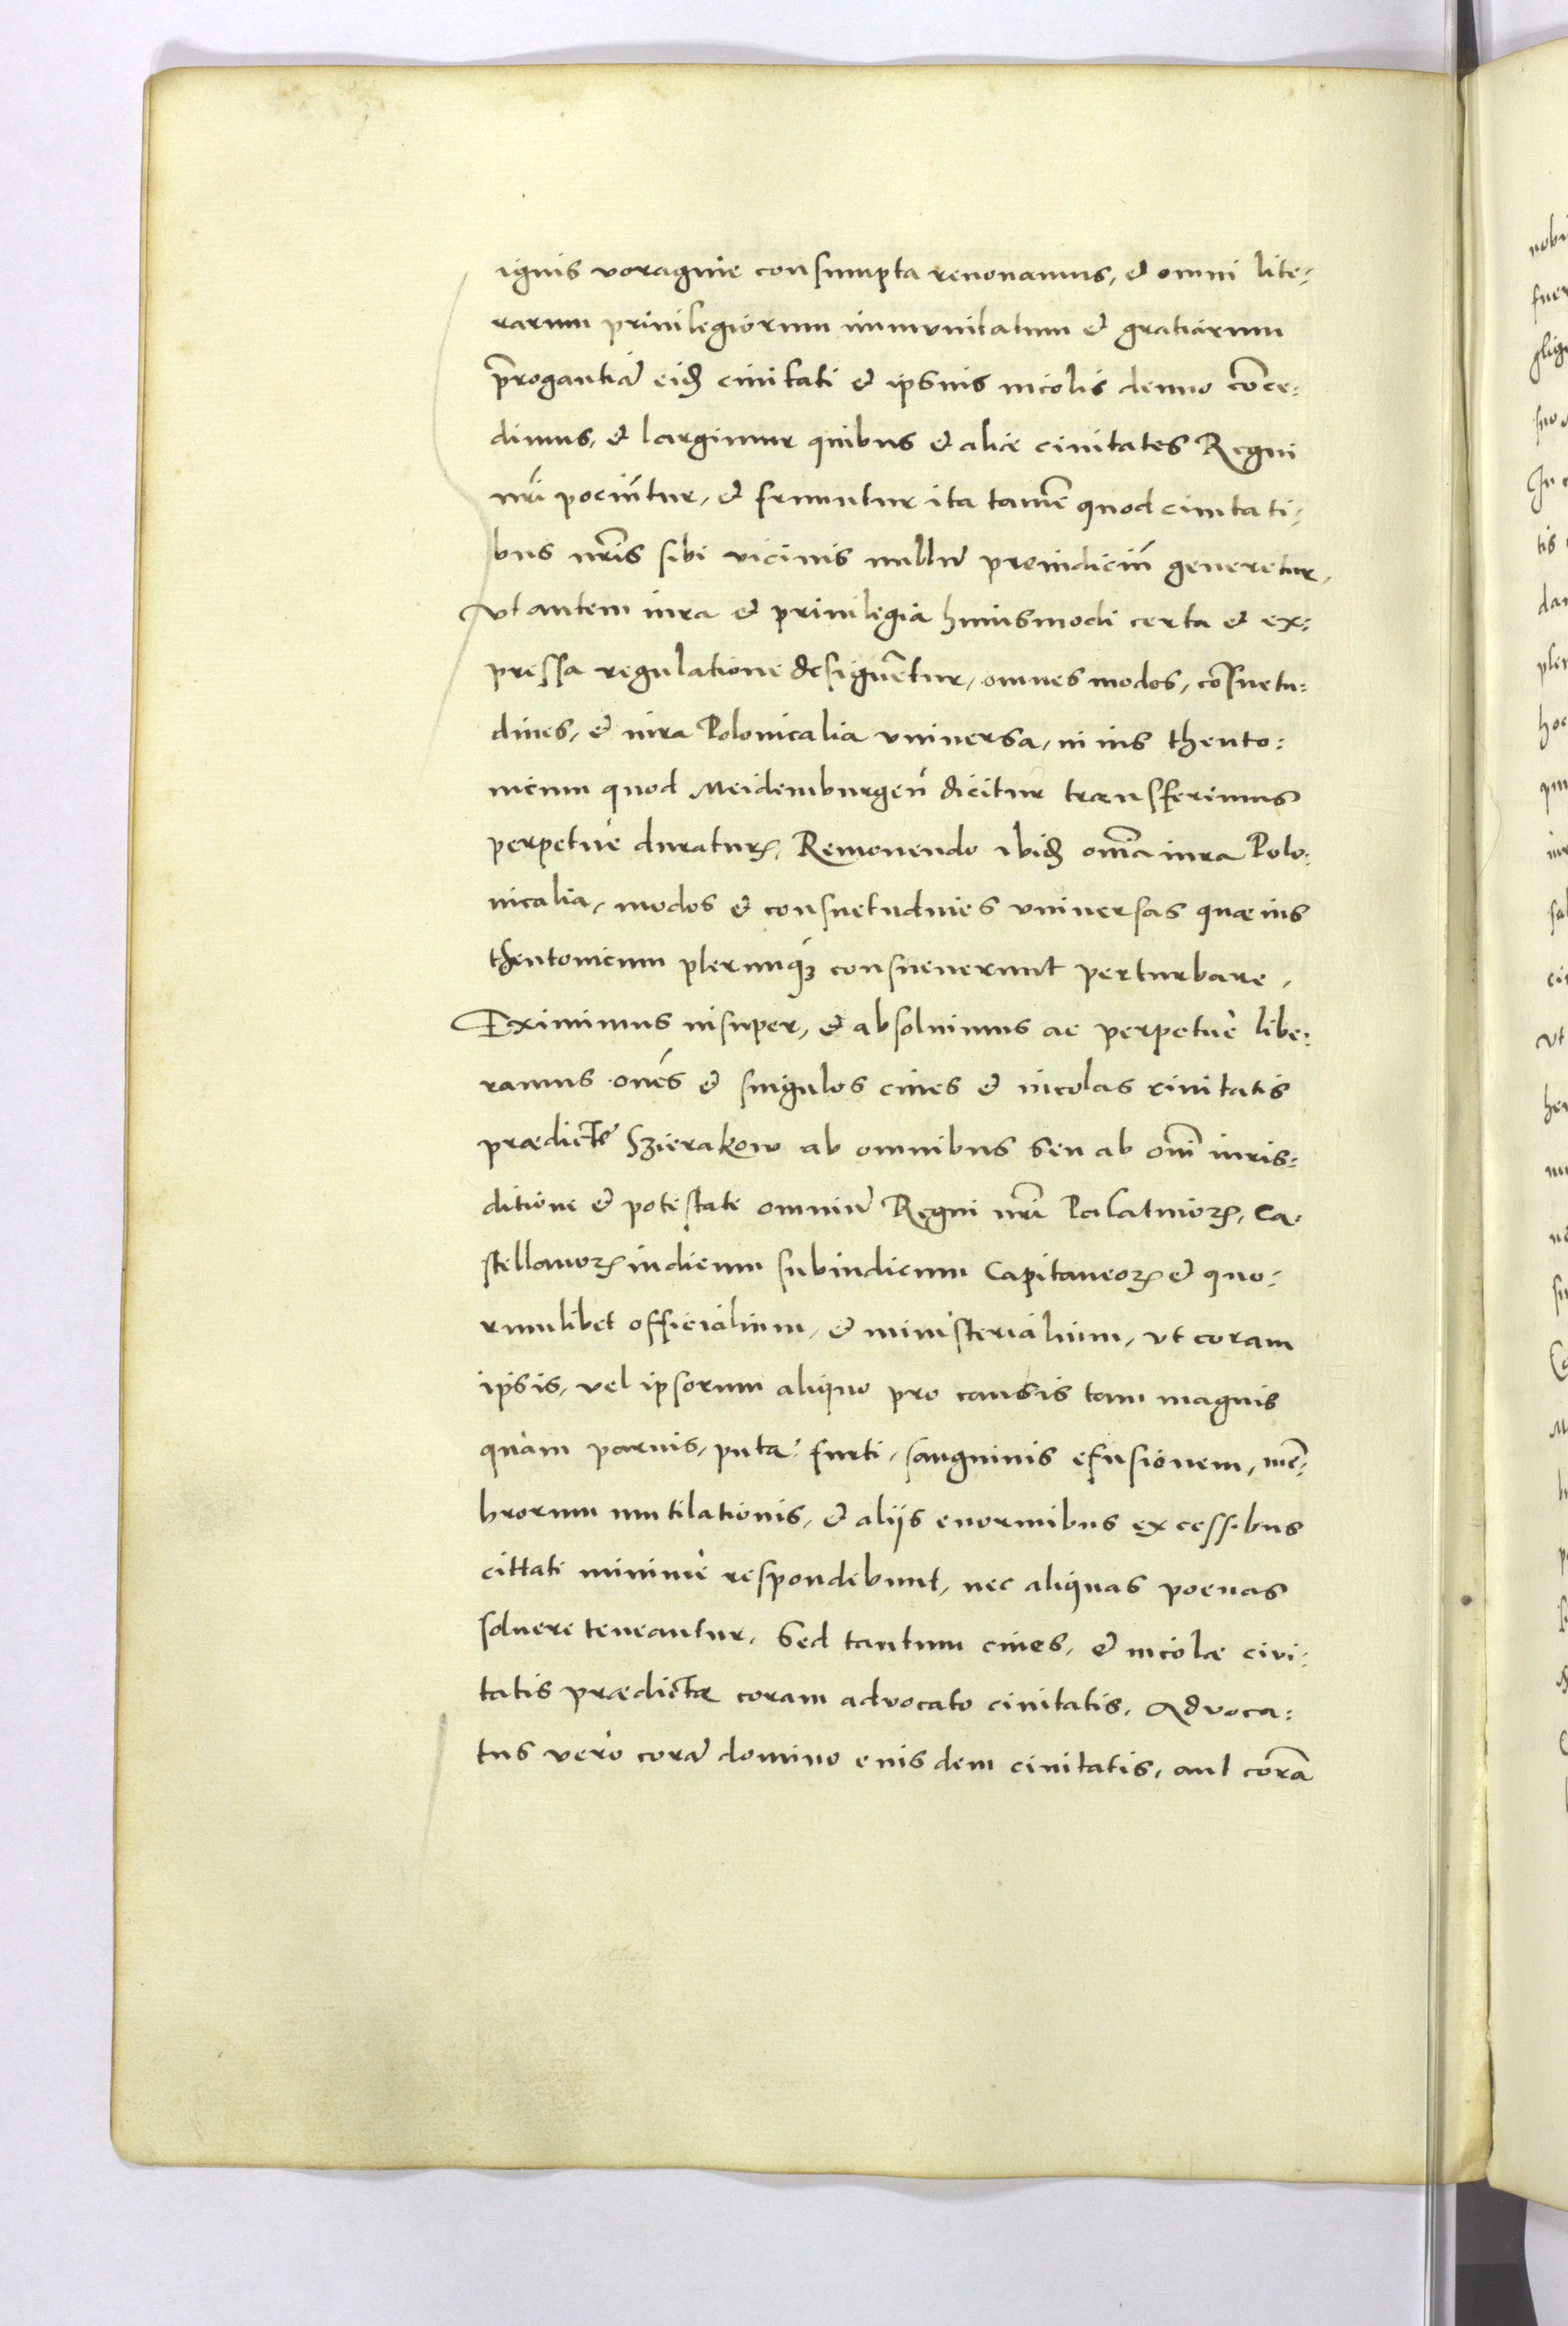 ignis voragine consumpta renouamus, et omni lite=
rarum priuilegiorum immunitatum et gratiarum
p̄rogantiā eidȝ ciuitati et ipsius incolis denuo cōce=
dimus, et largimur quibus et aliæ ciuitates Regni
nr̄i pociūtur, et fruuntur ita tamē quod ciuitati=
bus nr̄is sibi vicinis nullū preiudiciū generetur,
Vt autem iura et priuilegia huiusmodi certa et ex=
pressa regulatione designētur, omnes modos, cōsuetu=
dines, et iura Polonicalia vniuersa, in ius theuto=
nicum quod Meidemburgen̄ dicitur transferimus
perpetue duraturꝝ, Remouendo ibidȝ om̄ia iura Polo=
nicalia, modos et consuetudines vniuersas quæ ius
theutonicum plerunqȝ consueuerunt perturbare,
Eximimus insuper, et absoluimus ac perpetuè libe=
ramus om̄es et singulos ciues et incolas ciuitatis
prædictę Szierakow ab omnibus seu ab om̄i iuris=
ditione et potestate omniū Regni nr̄i Palatinoꝝ, Ca=
stellanoꝝ iudicum subiudicum Capitaneoꝝ et quo=
rumlibet officialium, et ministerialium, vt coram
ipsis, vel ipsorum aliquo pro causis tam magnis
quàm paruis, puta: furti, sanguinis efusionem, mē=
brorum mutilationis, et aliis enormibus excessibus
cittati minimè respondebunt, nec aliquas poenas
soluere teneantur, Sed tantum ciues, et incolæ civi=
tatis prædictæ coram advocato ciuitatis, Advoca=
tus verò corā domino eiusdem ciuitatis, aut corā